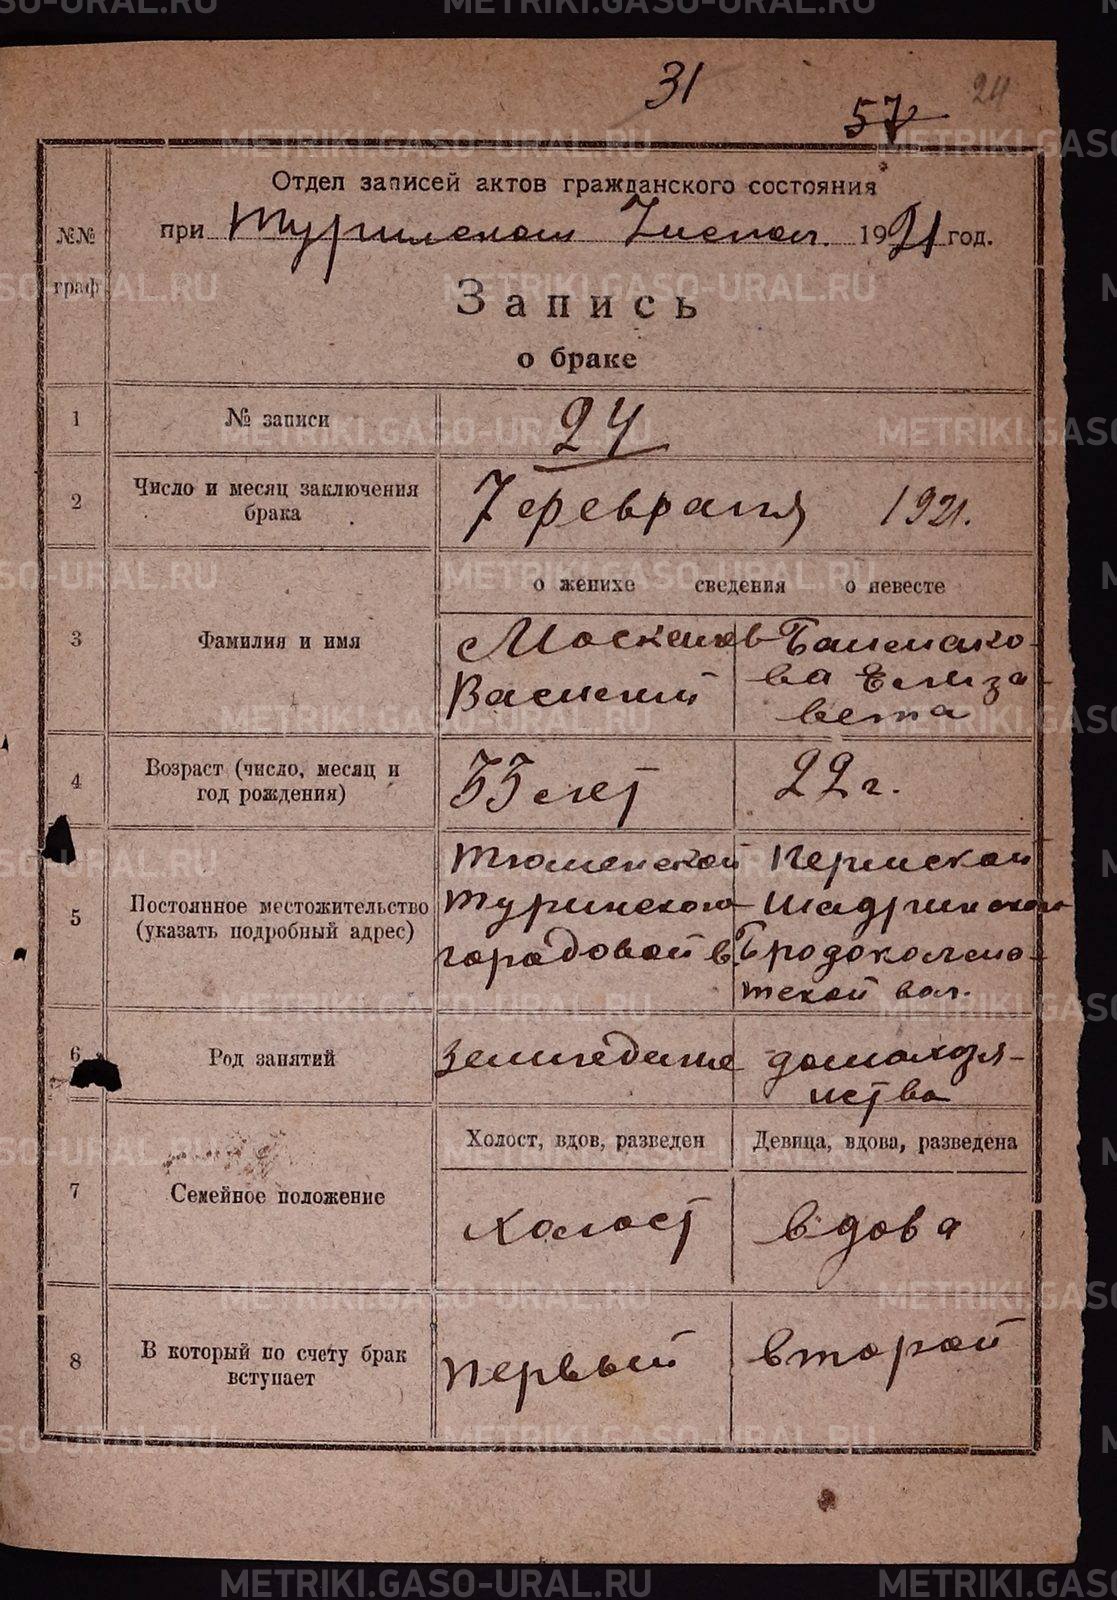 31
57
24
Отдел записей актов гражданского состояния
при Туринском Исполк. 1921 год.
№№ граф
Запись
о браке
1 № записи 24
2 Число и месяц заключения брака 7 февраля 1921.
о женихе сведения о невесте
3 Фамилия и имя
Василий
Башмако-
ва Елиза-
вета
4 Возраст (число, месяц и год рождения)
33 лет
22 г.
5 Постоянное местожительство (указать подробный адрес)
Тюменской
Туринского
городовой в.
Пермской
Шадринского
Бродоколма-
тской вол.
6 Род занятий
земледелие
домохозя-
йство
7 Семейное положение
Холост, вдов, разведен
Девица, вдова, разведена
холост
вдова
8 В который по счету брак вступает
первый
второй
METRIKI.GASO-URAL.RU